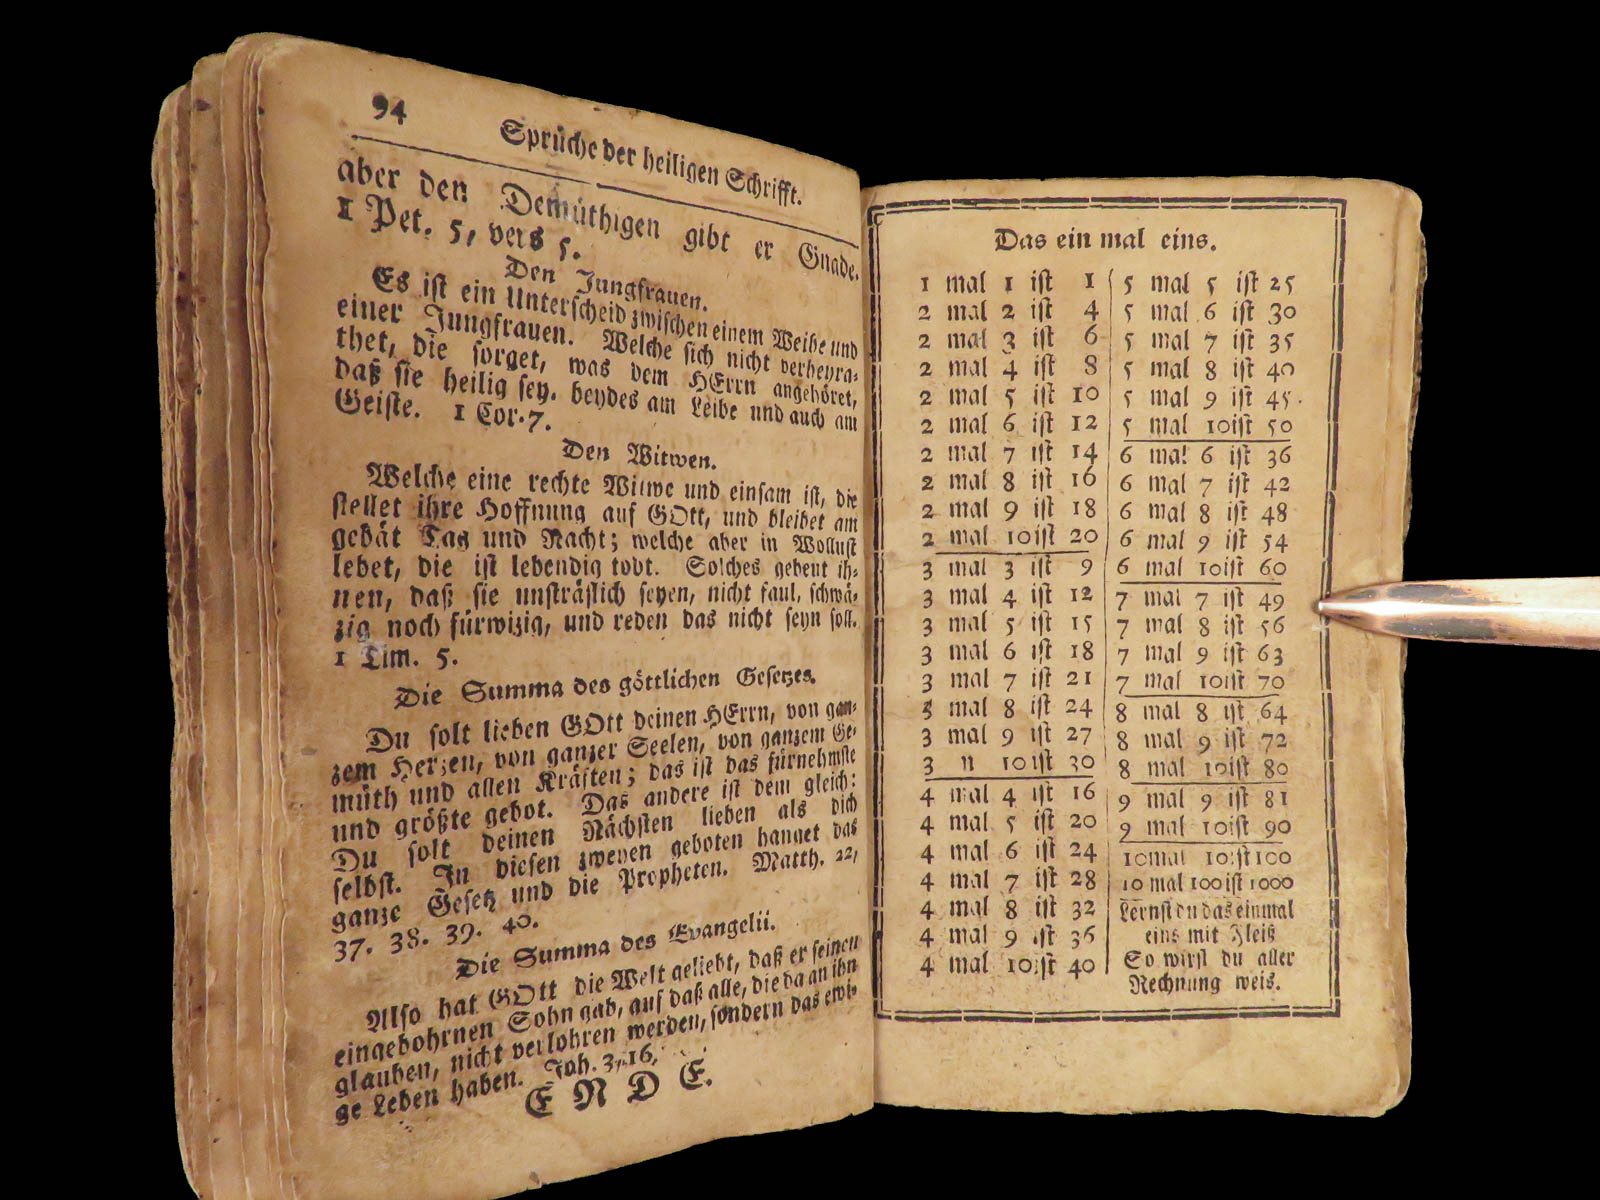 94
Sprüche der heiligen Schrifft.
aber den Demüthigen gibt er Gnade.
1 Pet. 5, vers 5.
Den Jungfrauen.
Es ist ein Unterscheid zwischen einem Weibe und
einer Jungfrauen. Welche sich nicht verheyra-
thet, die sorget, was dem HErrn angehöret,
daß sie heilig sey, beydes am Leibe und auch am
Geiste. 1 Cor. 7.
Den Witwen.
Welche eine rechte Witwe und einsam ist, die
stellet ihre Hoffnung auf GOtt, und bleibet am
gebät Tag und Nacht; welche aber in Wollust
lebet, die ist lebendig todt. Solches gebeut ih-
nen, daß sie unsträflich seyen, nicht faul, schwä-
zig noch fürwizig, und reden das nicht seyn soll.
1 Tim. 5.
Die Summa des göttlichen Gesetzes.
Du solt lieben GOtt deinen HErrn, von gan-
zem Herzen, von ganzer Seelen, von ganzem Ge-
müth und allen Kräften; das ist das fürnehmste
und größte gebot. Das andere ist dem gleich:
Du solt deinen Nächsten lieben als dich
selbst. In diesen zweyen geboten hanget das
ganze Gesetz und die Propheten. Matth. 22,
37. 38. 39. 40.
Die Summa des Evangelii.
Also hat GOtt die Welt geliebt, daß er seinen
eingebohrnen Sohn gab, auf daß alle, die da an ihn
glauben, nicht verlohren werden, sondern das ewi-
ge Leben haben. Joh. 3, 16.
ENDE.
Das ein mal eins.
1 mal 1 ist 1
2 mal 2 ist 4
2 mal 3 ist 6
2 mal 4 ist 8
2 mal 5 ist 10
2 mal 6 ist 12
2 mal 7 ist 14
2 mal 8 ist 16
2 mal 9 ist 18
2 mal 10 ist 20
3 mal 3 ist 9
3 mal 4 ist 12
3 mal 5 ist 15
3 mal 6 ist 18
3 mal 7 ist 21
3 mal 8 ist 24
3 mal 9 ist 27
3 n 10 ist 30
4 mal 4 ist 16
4 mal 5 ist 20
4 mal 6 ist 24
4 mal 7 ist 28
4 mal 8 ist 32
4 mal 9 ist 36
4 mal 10 ist 40
5 mal 5 ist 25
5 mal 6 ist 30
5 mal 7 ist 35
5 mal 8 ist 40
5 mal 9 ist 45
5 mal 10 ist 50
6 mal 6 ist 36
6 mal 7 ist 42
6 mal 8 ist 48
6 mal 9 ist 54
6 mal 10 ist 60
7 mal 7 ist 49
7 mal 8 ist 56
7 mal 9 ist 63
7 mal 10 ist 70
8 mal 8 ist 64
8 mal 9 ist 72
8 mal 10 ist 80
9 mal 9 ist 81
9 mal 10 ist 90
10 mal 10 ist 100
10 mal 100 ist 1000
Lernst du das einmal
eins mit Fleiß
So wirst du aller
Rechnung weis.